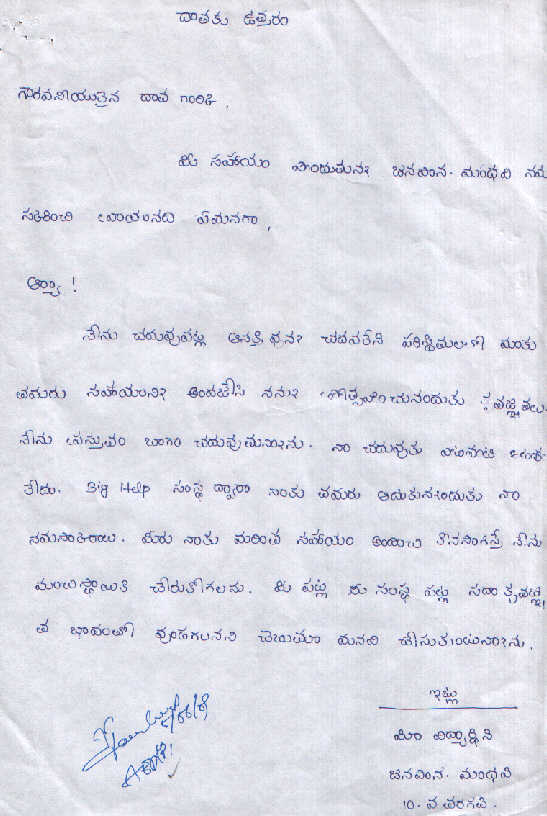 దాతకు ఉత్తరం
గౌరవనీయులైన దాత గారికి,
మీ సహాయం పొందుతున్న చినపాప. మంధని నమ
స్కరించి వ్రాయునది ఏమనగా,
అయ్యా !
నేను చదువుపట్ల ఆసక్తి ఉన్నా చదవలేని పరిస్థితులలో నాకు
తమరు సహాయాన్ని అందజేసి నన్ను ప్రోత్సహించినందుకు కృతజ్ఞతలు.
నేను ప్రస్తుతం బాగా చదువుతున్నాను. నా చదువుకు ఎటువంటి ఆటంకం
లేదు. Big Help సంస్థ ద్వారా నాకు తమరు ఆదుకున్నందుకు నా
నమస్కారాలు. మీరు నాకు మరింత సహాయం అందించి కొనసాగిస్తే నేను
మంచి స్థాయికి చేరుకోగలను. మీ పట్ల మీ సంస్థ పట్ల సదా కృతజ్ఞ
త భావంతో వుండగలనని మనవి చేసుకుంటున్నాను.
ఇట్లు
మీ విద్యార్థిని
చినపాప. మంధని
10 - వ తరగతి.